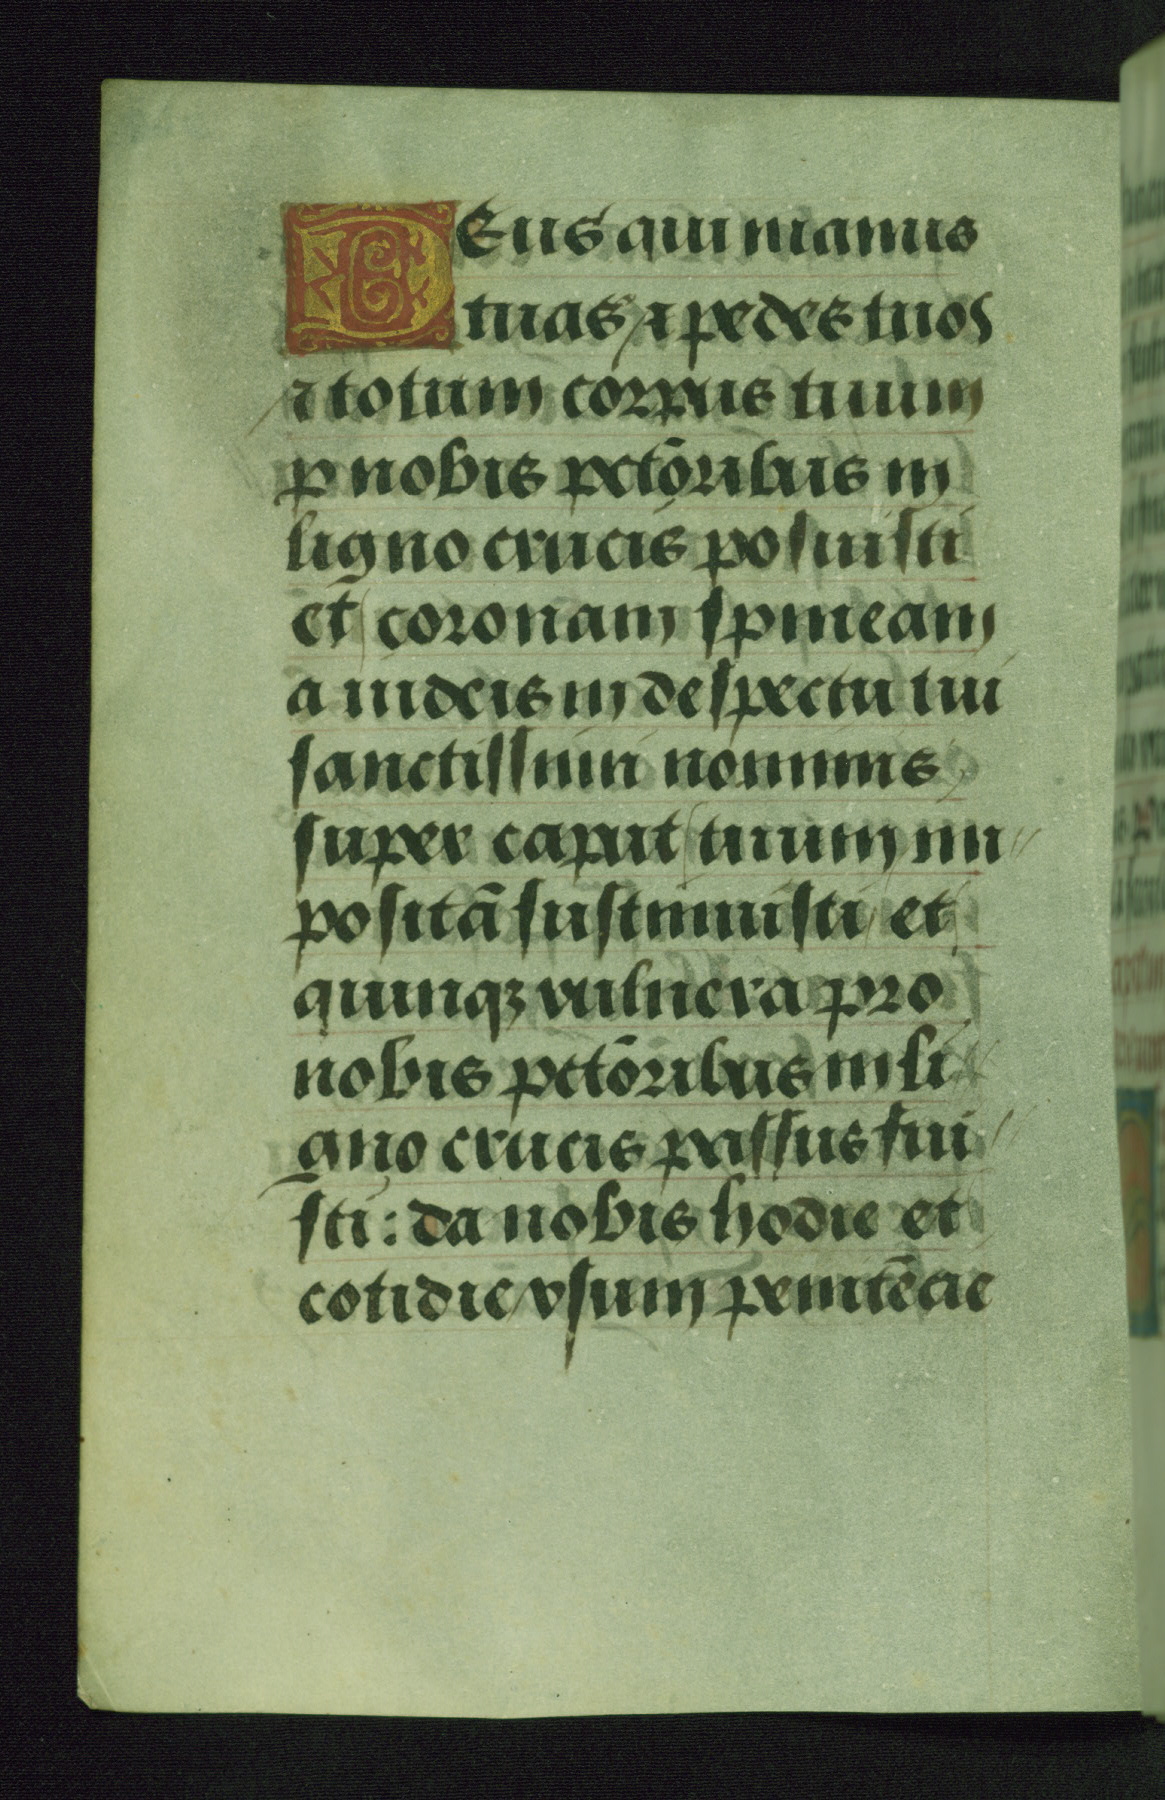 DEus qui manus
tuas ⁊ pedes tuos
⁊ totum corpus tuum
p nobis pctōribus in
ligno crucis posuisti
et coronam spineam
a iudeis in despectu tui
sanctissimi nominis
super caput tuum im
positā sustinuisti et
quinqꝫ vulnera pro
nobis pctōribus in li
gno crucis passus fui
sti : da nobis hodie et
cotidie vsum penitēcie